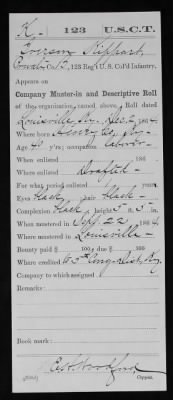 K. 123 U.S.C.T.
Co. B, 123 Reg't U.S. Col'd Infantry.
Appears on
Company Muster-in and Descriptive Roll
of the organization named above. Roll dated
Louisville, Ky. Dec. 2, 1864.
Where born Henry Co., Ky.
Age 40 yrs; occupation Laborer
When enlisted , 186
Where enlisted Drafted
For what period enlisted years.
Eyes black; hair black
Complexion black; height 5 ft. 5 in.
When mustered in Sept. 22, 1864.
Where mustered in Louisville
Bounty paid $ 100; due $ 100
Where credited 5th Cong. Dist. Ky.
Company to which assigned
Remarks:
Book mark:
Copyist.